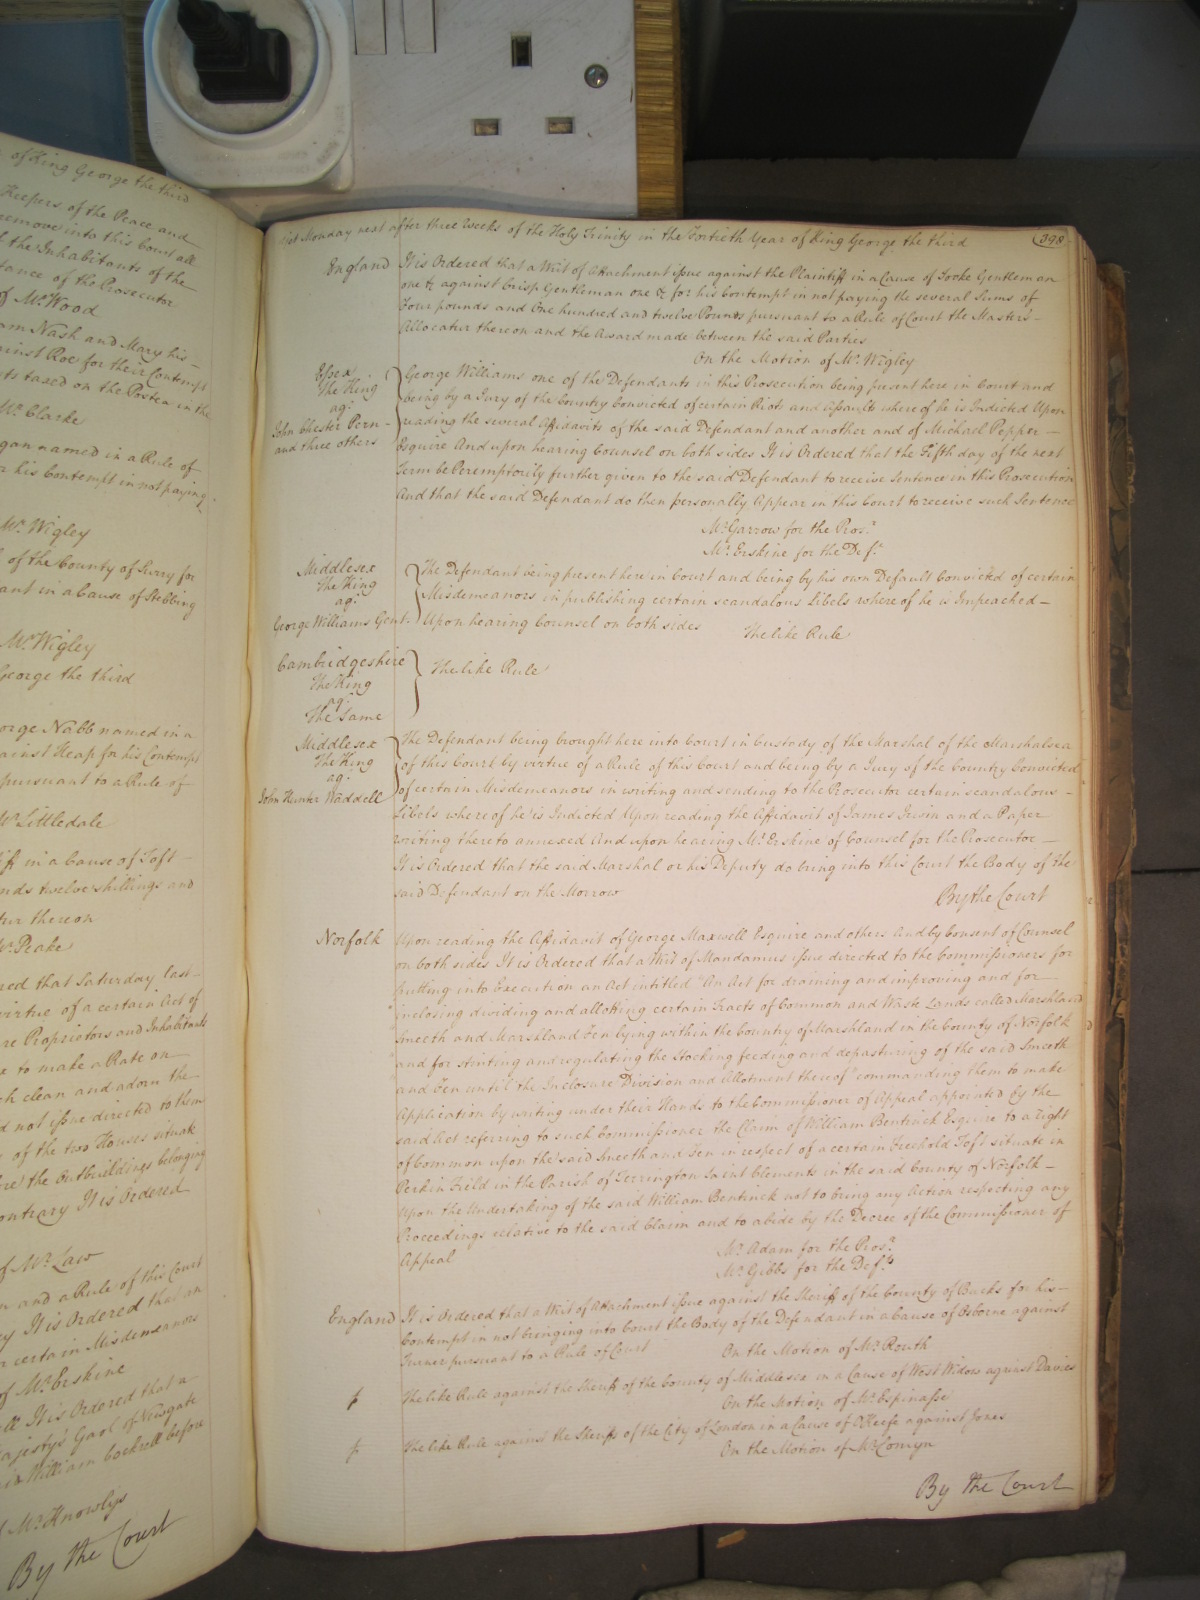 of King George the third
Keepers of the Peace and
remove into this Court all
the Inhabitants of the
tance of the Prosecutor
of Mr. Wood
am Nash and Mary his
ainst Roe for their Contempt
sts taxed on the Postea in the
Mr. Clarke
gan named in a Rule of
r his Contempt in not paying
Mr. Wigley
of the County of Surry for
ant in a Cause of Stebbing
Mr. Wigley
George the third
orge Nabb named in a
ainst Heap for his Contempt
pursuant to a Rule of
Mr. Littledale
iff in a Cause of Toft
nds twelve shillings and
tur thereon
Mr. Peake
red that Saturday last
virtue of a certain Act of
re Proprietors and Inhabitants
e to make a Rate on
ch clean and adorn the
d not issue directed to them
of the two Houses situate
re the Outbuildings belonging
ontrary It is Ordered
of Mr. Law
n and a Rule of this Court
y It is Ordered that an
r certain Misdemeanors
of Mr. Erskine
ell It is Ordered that a
ajesty's Gaol of Newgate
is William Cockrell before
Mr. Knowlys
By the Court
Monday next after three Weeks of the Holy Trinity in the Fortieth Year of King George the third
398
England It is Ordered that a Writ of Attachment issue against the Plaintiff in a Cause of Tooke Gentleman
one &c against Crisp Gentleman one &c for his Contempt in not paying the several Sums of
Four pounds and One hundred and twelve Pounds pursuant to a Rule of Court the Master's
Allocatur thereon and the Award made between the said Parties
On the Motion of Mr. Wigley
Essex
The King
agt.
John Chester Pern-
and three others
George Williams one of the Defendants in this Prosecution being present here in Court and
being by a Jury of the Country Convicted of certain Riots and Assaults whereof he is Indicted Upon
reading the several Affidavits of the said Defendant and another and of Michael Pepper
Esquire And upon hearing Counsel on both sides It is Ordered that the Fifth day of the next
Term be Peremptorily further given to the said Defendant to receive Sentence in this Prosecution
And that the said Defendant do then personally Appear in this Court to receive such Sentence
Mr. Garrow for the Pros.r
Mr. Erskine for the Def.t
Middlesex
The King
agt.
George Williams Gent.
The Defendant being present here in Court and being by his own Default Convicted of certain
Misdemeanors in publishing certain scandalous Libels whereof he is Impeached
Upon hearing Counsel on both sides The like Rule
Cambridgeshire
The King
agt.
The Same
The like Rule
Middlesex
The King
agt.
John Hunter Waddell
The Defendant being brought here into Court in Custody of the Marshal of the Marshalsea
of this Court by virtue of a Rule of this Court and being by a Jury of the Country Convicted
of certain Misdemeanors in writing and sending to the Prosecutor certain scandalous
Libels whereof he is Indicted Upon reading the Affidavit of James Irwin and a Paper
writing thereto annexed And upon hearing Mr. Erskine of Counsel for the Prosecutor
It is Ordered that the said Marshal or his Deputy do bring into this Court the Body of the
said Defendant on the Morrow By the Court
Norfolk Upon reading the Affidavit of George Maxwell Esquire and others And by Consent of Counsel
on both sides It is Ordered that a Writ of Mandamus issue directed to the Commissioners for
putting into Execution an Act intitled "An Act for draining and improving and for
inclosing dividing and allotting certain Tracts of Common and Waste Lands called Marshland
Smeeth and Marshland Fen lying within the Country of Marshland in the County of Norfolk
and for stinting and regulating the Stocking feeding and depasturing of the said Smeeth
and Fen until the Inclosure Division and Allotment thereof" commanding them to make
Application by writing under their Hands to the Commissioner of Appeal appointed by the
said Act referring to such Commissioner the Claim of William Bentinck Esquire to a Right
of Common upon the said Smeeth and Fen in respect of a certain Freehold Toft situate in
Perkin Field in the Parish of Terrington Saint Clements in the said County of Norfolk
Upon the Undertaking of the said William Bentinck not to bring any Action respecting any
Proceedings relative to the said Claim and to abide by the Decree of the Commissioner of
Appeal
Mr. Adam for the Pros.r
Mr. Gibbs for the Def.ts
England It is Ordered that a Writ of Attachment issue against the Sheriff of the County of Bucks for his
Contempt in not bringing into Court the Body of the Defendant in a Cause of Osborne against
Turner pursuant to a Rule of Court On the Motion of Mr. Routh
The like Rule against the Sheriff of the County of Middlesex in a Cause of West Widow against Davies
On the Motion of Mr. Espinasse
The like Rule against the Sheriffs of the City of London in a Cause of O'Keefe against Jones
On the Motion of Mr. Comyn
By the Court